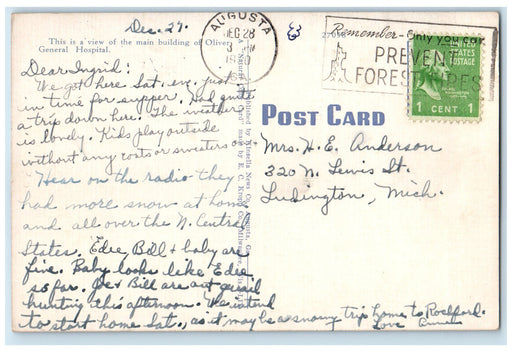 Dec. 27.
This is a view of the main building of Oliver
General Hospital.
AUGUSTA
DEC 28
3 PM
Remember - Only you can
PREVENT
FOREST FIRES
UNITED
STATES
POSTAGE
1 CENT 1
POST CARD
Dear Ingrid:
We got here Sat. eve. just
in time for supper. Had quite
a trip down here. The weather
is lovely. Kids play outside
without any coats or sweaters on.
Hear on the radio they
had more snow at home
and all over the N. Central
States. Edee, Bill + baby are
fine. Baby looks like Edee
so far. & Bill are out quail
hunting this afternoon. We intend
to start home Sat., as it may be a snowy trip home to Rockford.
Love
Mrs. H. E. Anderson
320 N. Lewis St.
Ludington, Mich.